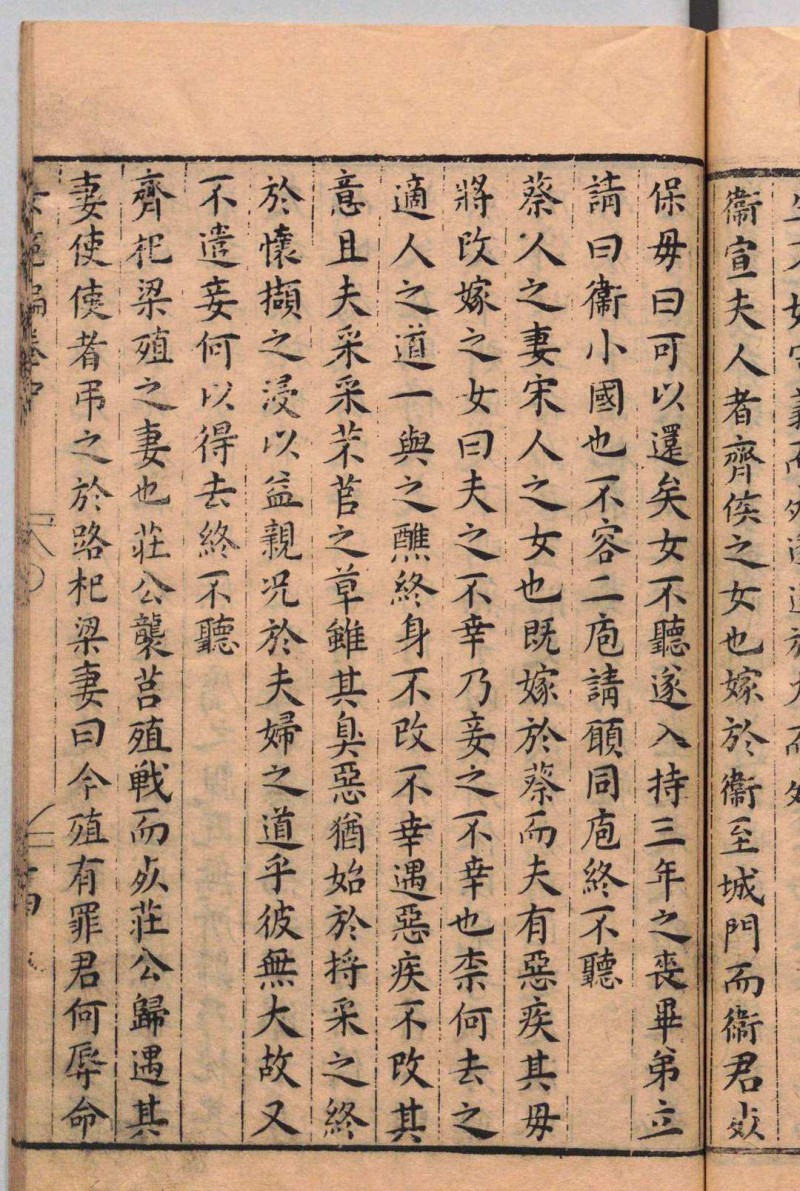 衞宣夫人者齊侯之女也嫁於衞至城門而衞君死
保毋曰可以還矣女不聽遂入持三年之喪畢弟立
請曰衞小國也不容二庖請願同庖終不聽
蔡人之妻宋人之女也既嫁於蔡而夫有惡疾其毋
將改嫁之女曰夫之不幸乃妾之不幸也柰何去之
適人之道一與之醮終身不改不幸遇惡疾不改其
意且夫采采芣苢之草雖其臭惡猶始於捋采之終
於懷擷之浸以益親况於夫婦之道乎彼無大故又
不遣妾何以得去終不聽
齊杞梁殖之妻也莊公襲莒殖戰而死莊公歸遇其
妻使使者弔之於路杞梁妻曰今殖有罪君何辱命